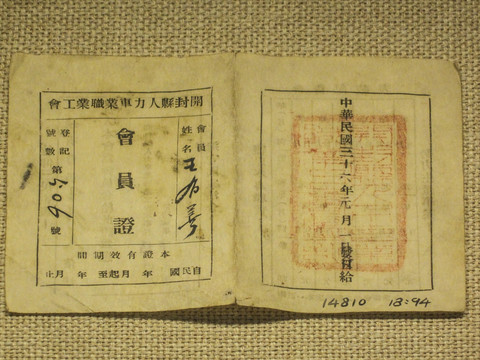 開封縣人力車業職業工會
會員姓名 王 善
會員證
登記號數第 號
本證有效期間
自民國 年 月起至 年 月止
中華民國三十六年元月一日 給
14810 18:94